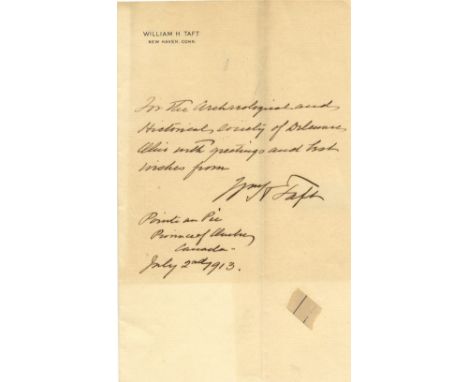 WILLIAM H TAFT
NEW HAVEN, CONN.
For the Archaeological and
Historical Society of Delaware
Ohio with greetings and best
wishes from
Wm H Taft
Pointe au Pic
Province of Quebec
Canada-
July 2nd 1913.